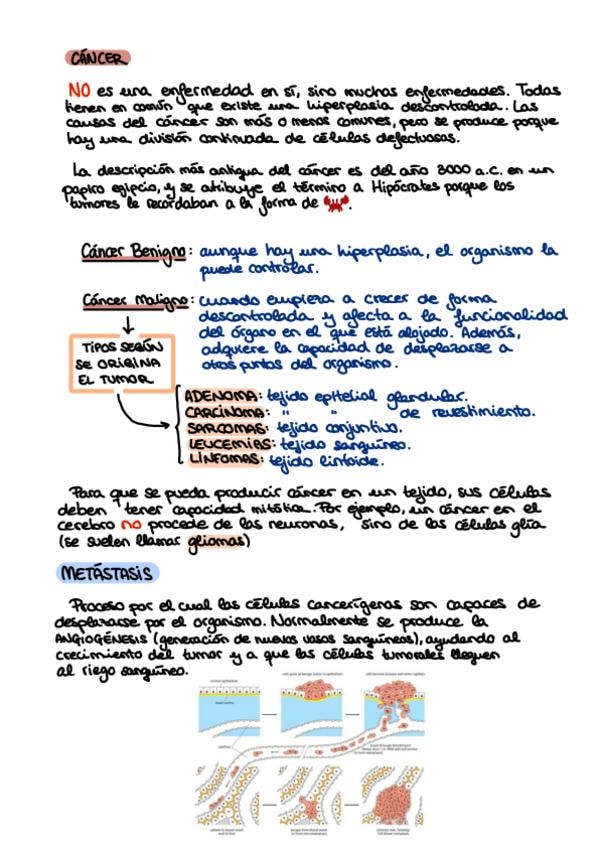 CÁNCER
NO es una enfermedad en sí, sino muchas enfermedades. Todas
tienen en común que existe una hiperplasia descontrolada. Las
causas del cáncer son más o menos comunes, pero se produce porque
hay una división continuada de células defectuosas.
La descripción más antigua del cáncer es del año 3000 a.C. en un
papiro egipcio, y se atribuye el término a Hipócrates porque los
tumores le recordaban a la forma de
Cáncer Benigno: aunque hay una hiperplasia, el organismo la
puede controlar.
Cáncer Maligno: cuando empieza a crecer de forma
descontrolada y afecta a la funcionalidad
del órgano en el que está alojado. Además,
adquiere la capacidad de desplazarse a
otros puntos del organismo.
TIPOS SEGÚN
SE ORIGINA
EL TUMOR
ADENOMA: tejido epitelial glandular.
CARCINOMA: " " de revestimiento.
SARCOMAS: tejido conjuntivo.
LEUCEMIAS: tejido sanguíneo.
LINFOMAS: tejido linfoide.
Para que se pueda producir cáncer en un tejido, sus células
deben tener capacidad mitótica. Por ejemplo, un cáncer en el
cerebro no procede de las neuronas, sino de las células glía
(se suelen llamar gliomas)
METÁSTASIS
Proceso por el cual las células cancerígenas son capaces de
desplazarse por el organismo. Normalmente se produce la
ANGIOGÉNESIS (generación de nuevos vasos sanguíneos), ayudando al
crecimiento del tumor y a que las células tumorales lleguen
al riego sanguíneo.
normal epithelium
basal lamina
capillary